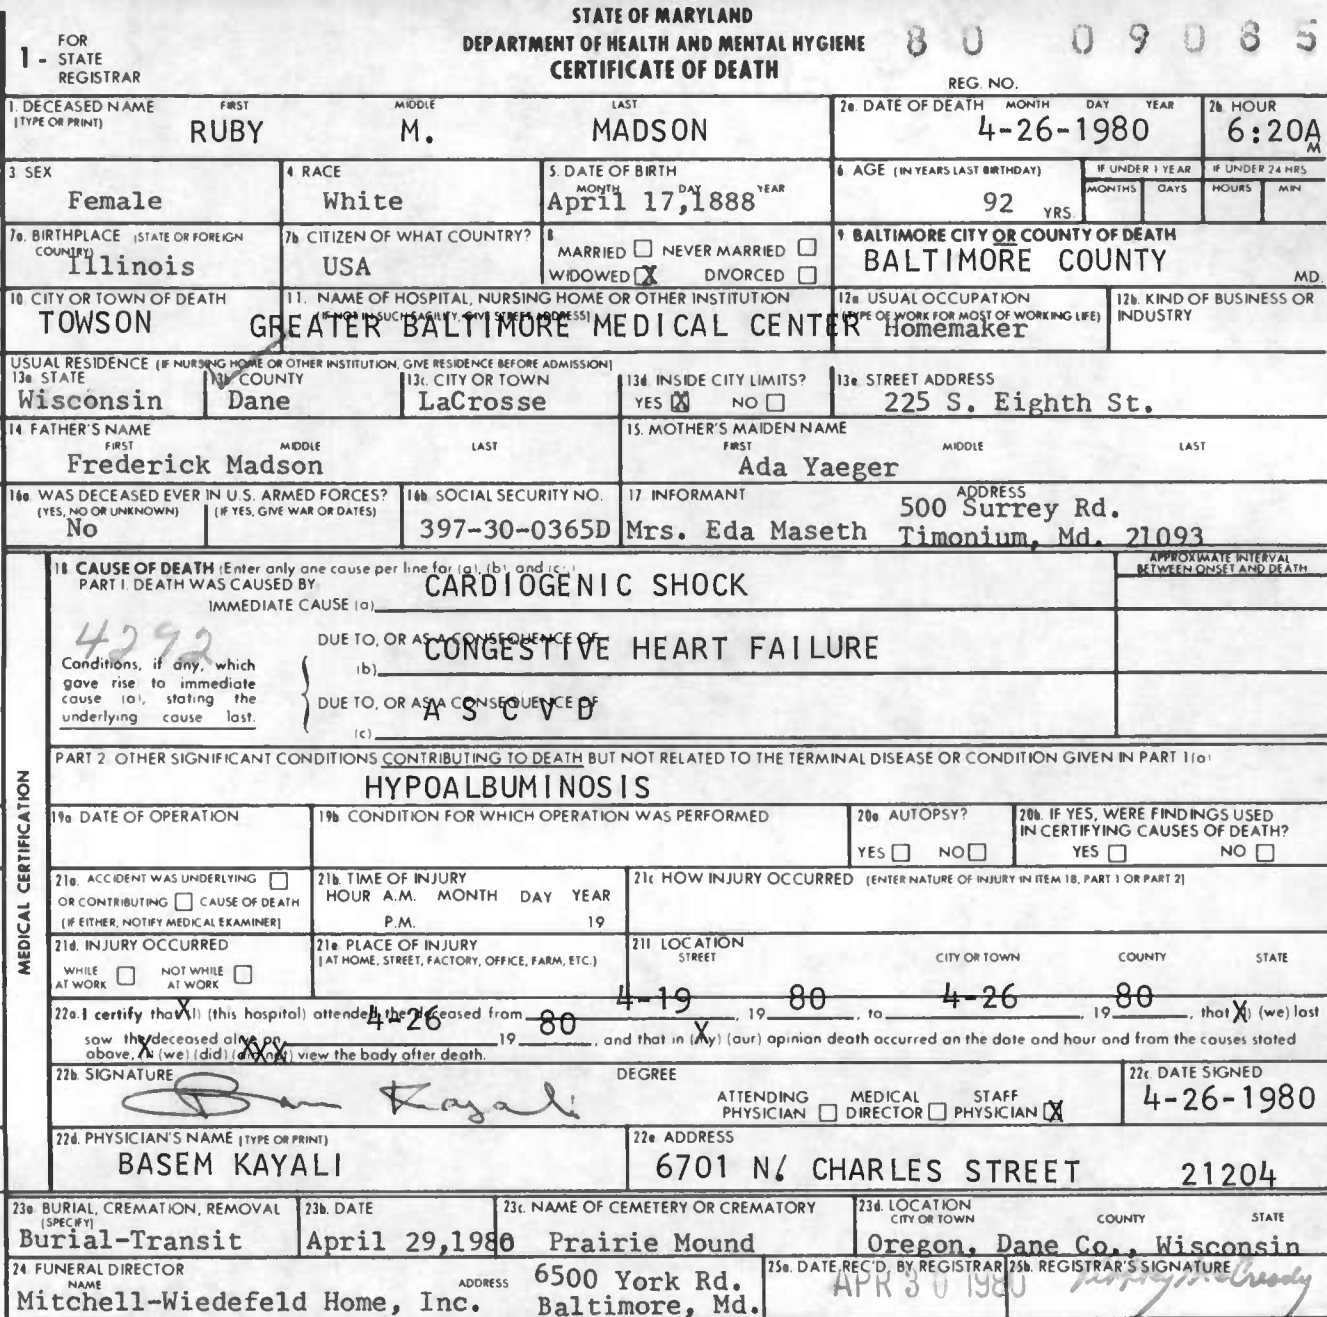 STATE OF MARYLAND
DEPARTMENT OF HEALTH AND MENTAL HYGIENE
CERTIFICATE OF DEATH
1 - FOR STATE REGISTRAR
80 09085
REG. NO.
1. DECEASED NAME (TYPE OR PRINT) FIRST MIDDLE LAST
RUBY M. MADSON
2a. DATE OF DEATH MONTH DAY YEAR
4-26-1980
2b. HOUR
6:20A M
3 SEX
Female
4 RACE
White
5. DATE OF BIRTH MONTH DAY YEAR
April 17,1888
6 AGE (IN YEARS LAST BIRTHDAY)
92 YRS.
IF UNDER 1 YEAR MONTHS DAYS
IF UNDER 24 HRS HOURS MIN
7a. BIRTHPLACE (STATE OR FOREIGN COUNTRY)
Illinois
7b CITIZEN OF WHAT COUNTRY?
USA
8 MARRIED NEVER MARRIED
WIDOWED X DIVORCED
9 BALTIMORE CITY OR COUNTY OF DEATH
BALTIMORE COUNTY MD.
10. CITY OR TOWN OF DEATH
TOWSON
11. NAME OF HOSPITAL, NURSING HOME OR OTHER INSTITUTION
(IF NOT IN SUCH FACILITY, GIVE STREET ADDRESS)
GREATER BALTIMORE MEDICAL CENTER
12a. USUAL OCCUPATION
(TYPE OF WORK FOR MOST OF WORKING LIFE)
Homemaker
12b. KIND OF BUSINESS OR INDUSTRY
USUAL RESIDENCE (IF NURSING HOME OR OTHER INSTITUTION, GIVE RESIDENCE BEFORE ADMISSION)
13a STATE
Wisconsin
13b COUNTY
Dane
13c. CITY OR TOWN
LaCrosse
13d INSIDE CITY LIMITS?
YES X NO
13e STREET ADDRESS
225 S. Eighth St.
14 FATHER'S NAME FIRST MIDDLE LAST
Frederick Madson
15. MOTHER'S MAIDEN NAME FIRST MIDDLE LAST
Ada Yaeger
16a. WAS DECEASED EVER IN U.S. ARMED FORCES?
(YES, NO OR UNKNOWN) (IF YES, GIVE WAR OR DATES)
No
16b SOCIAL SECURITY NO.
397-30-0365D
17 INFORMANT ADDRESS
Mrs. Eda Maseth
500 Surrey Rd.
Timonium, Md. 21093
MEDICAL CERTIFICATION
18 CAUSE OF DEATH (Enter only one cause per line for (a), (b), and (c).)
PART I. DEATH WAS CAUSED BY
IMMEDIATE CAUSE (a) CARDIOGENIC SHOCK
APPROXIMATE INTERVAL BETWEEN ONSET AND DEATH
4292
Conditions, if any, which gave rise to immediate cause (a), stating the underlying cause last.
DUE TO, OR AS A CONSEQUENCE OF
(b) CONGESTIVE HEART FAILURE
DUE TO, OR AS A CONSEQUENCE OF
(c) A S C V D
PART 2. OTHER SIGNIFICANT CONDITIONS CONTRIBUTING TO DEATH BUT NOT RELATED TO THE TERMINAL DISEASE OR CONDITION GIVEN IN PART 1(a)
HYPOALBUMINOSIS
19a DATE OF OPERATION
19b. CONDITION FOR WHICH OPERATION WAS PERFORMED
20a AUTOPSY?
YES NO
20b. IF YES, WERE FINDINGS USED IN CERTIFYING CAUSES OF DEATH?
YES NO
21a. ACCIDENT WAS UNDERLYING
OR CONTRIBUTING CAUSE OF DEATH
(IF EITHER, NOTIFY MEDICAL EXAMINER)
21b. TIME OF INJURY
HOUR A.M. MONTH DAY YEAR
P.M. 19
21c HOW INJURY OCCURRED (ENTER NATURE OF INJURY IN ITEM 18, PART 1 OR PART 2)
21d. INJURY OCCURRED
WHILE AT WORK NOT WHILE AT WORK
21e PLACE OF INJURY
(AT HOME, STREET, FACTORY, OFFICE, FARM, ETC.)
21f LOCATION
STREET CITY OR TOWN COUNTY STATE
22a. I certify that (I) (this hospital) attended the deceased from 4-19, 19 80, to 4-26, 19 80, that (I) (we) last
saw the deceased alive on 4-26 19 80, and that in (my) (our) opinion death occurred on the date and hour and from the causes stated
above, (I) (we) (did) (did not) view the body after death.
22b. SIGNATURE DEGREE
Basem Kayali
ATTENDING PHYSICIAN MEDICAL DIRECTOR STAFF PHYSICIAN X
22c. DATE SIGNED
4-26-1980
22d. PHYSICIAN'S NAME (TYPE OR PRINT)
BASEM KAYALI
22e ADDRESS
6701 N. CHARLES STREET 21204
23a. BURIAL, CREMATION, REMOVAL (SPECIFY)
Burial-Transit
23b. DATE
April 29,1980
23c. NAME OF CEMETERY OR CREMATORY
Prairie Mound
23d. LOCATION
CITY OR TOWN COUNTY STATE
Oregon, Dane Co., Wisconsin
24. FUNERAL DIRECTOR
NAME ADDRESS
Mitchell-Wiedefeld Home, Inc.
6500 York Rd.
Baltimore, Md.
25a. DATE REC'D. BY REGISTRAR
APR 30 1980
25b. REGISTRAR'S SIGNATURE